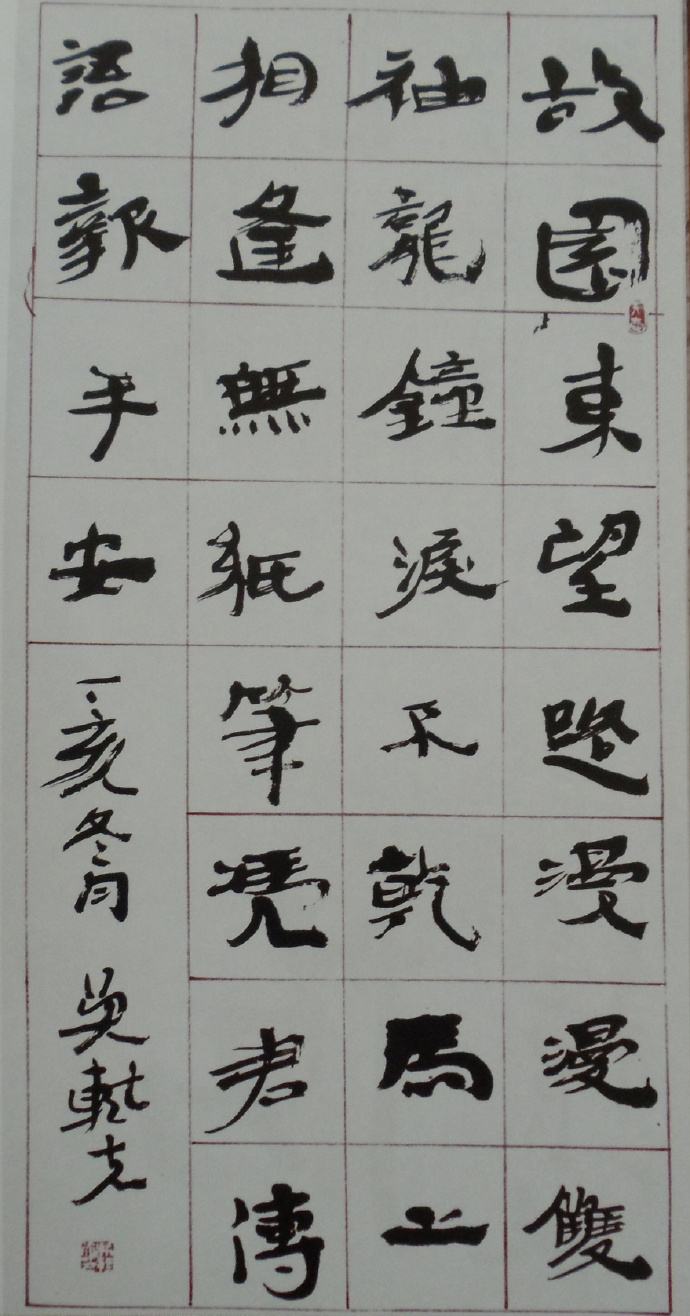 故園東望路漫漫雙
袖龍鐘淚不乾馬上
相逢無紙筆凴君傳
語報平安
亥冬月 吳 克